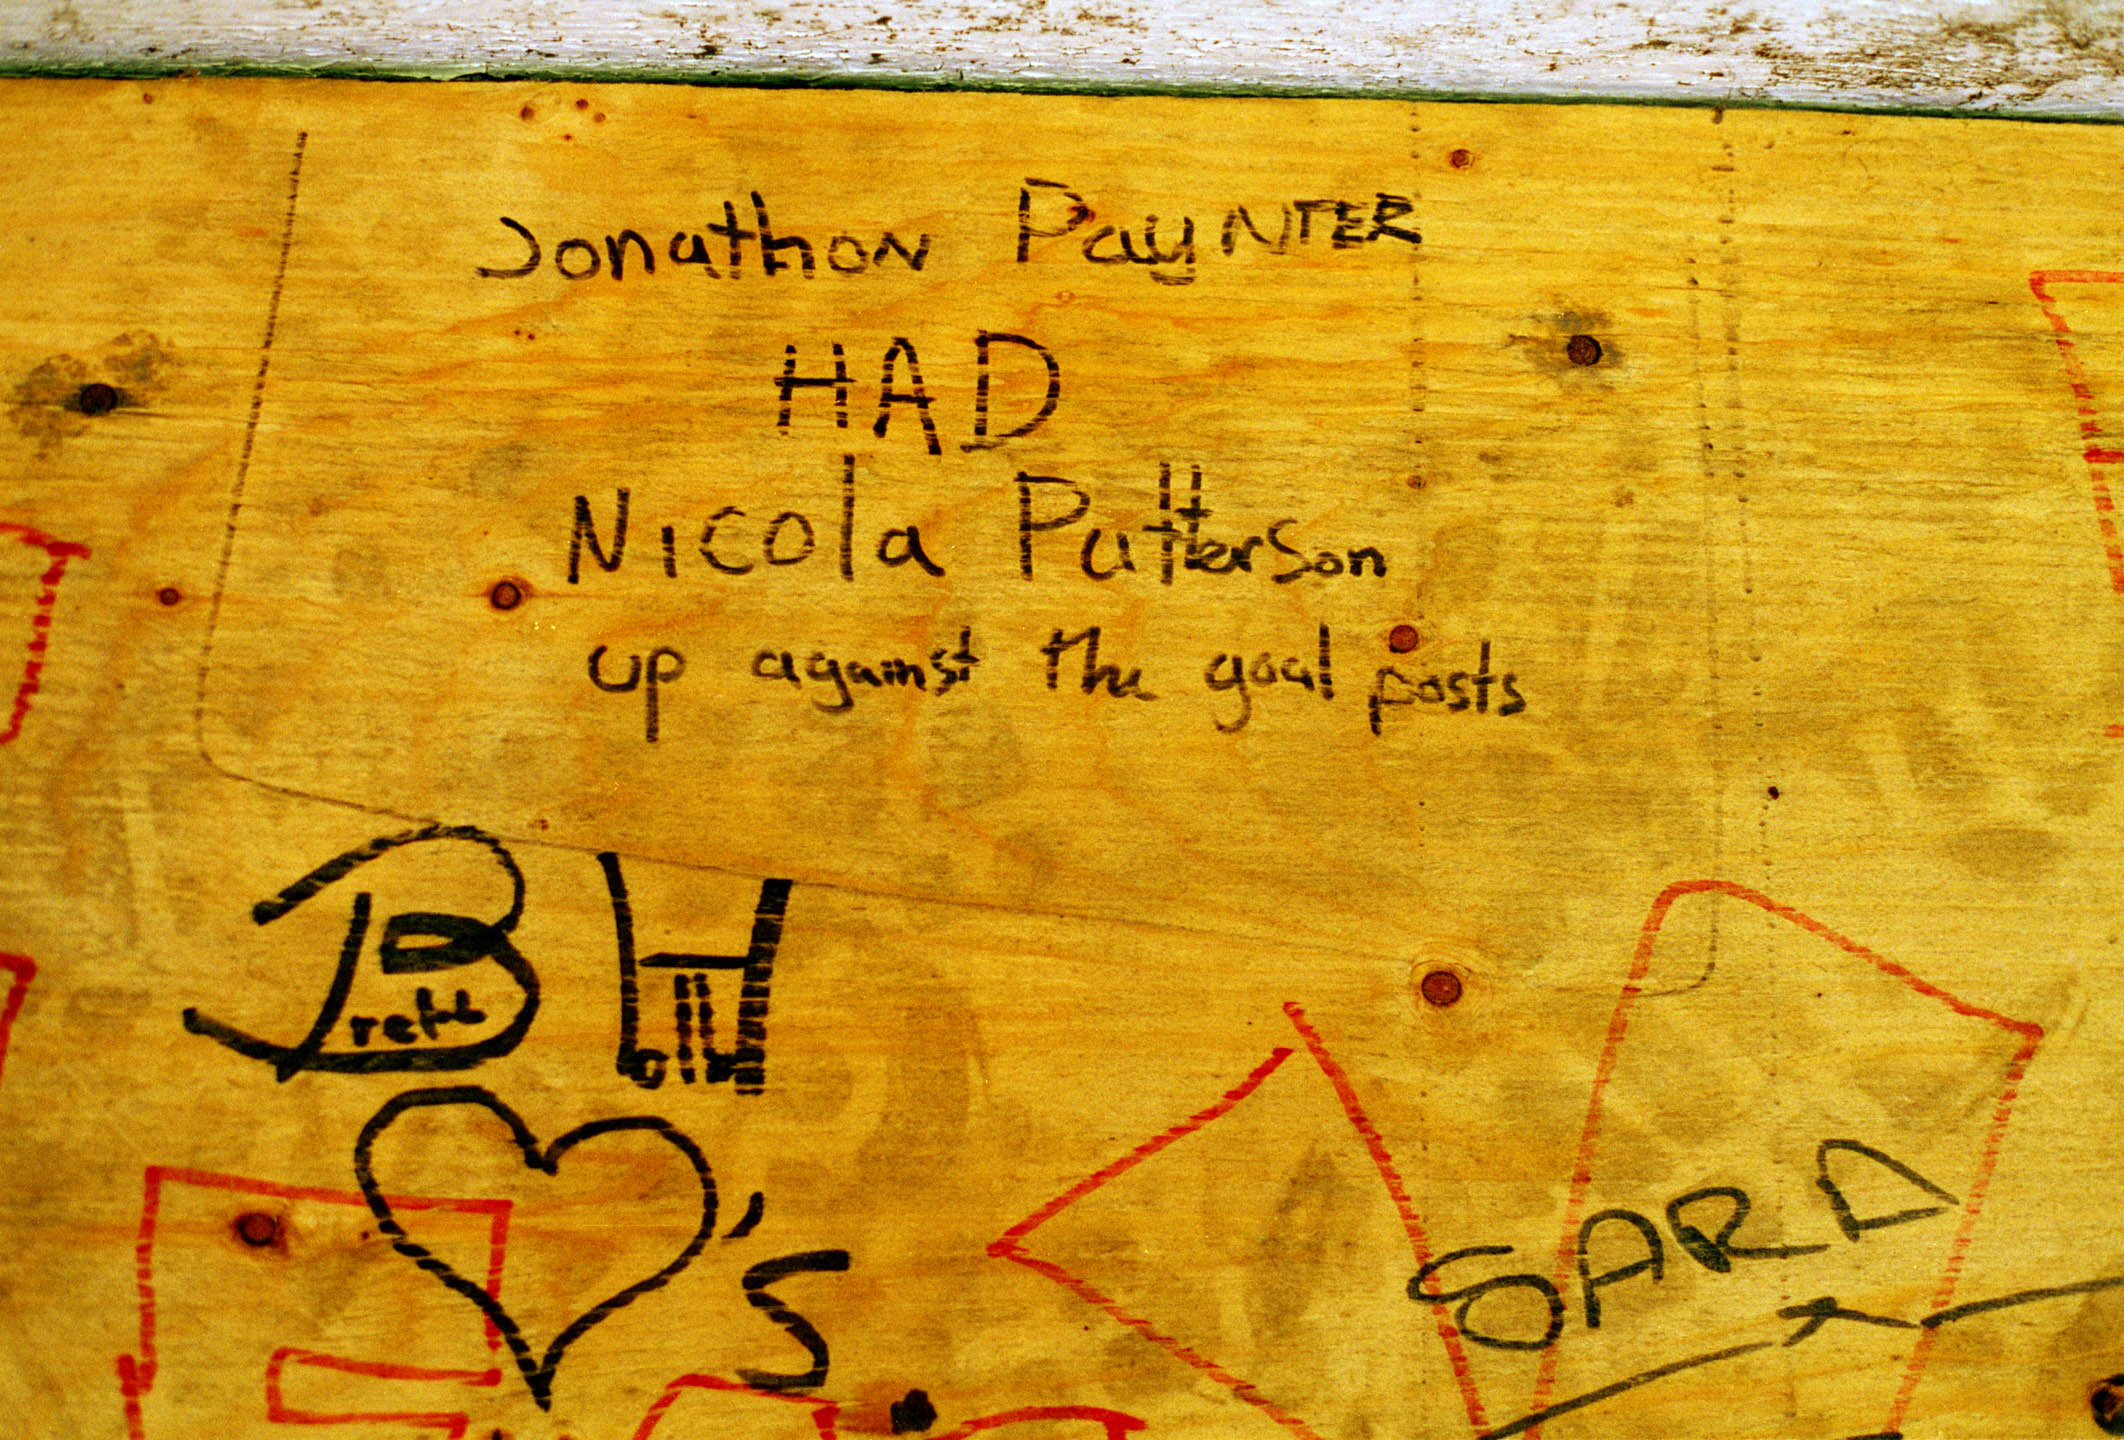 Jonathon PayNTER
HAD
Nicola Patterson
up against the goal posts
BH
♥'s
SARA